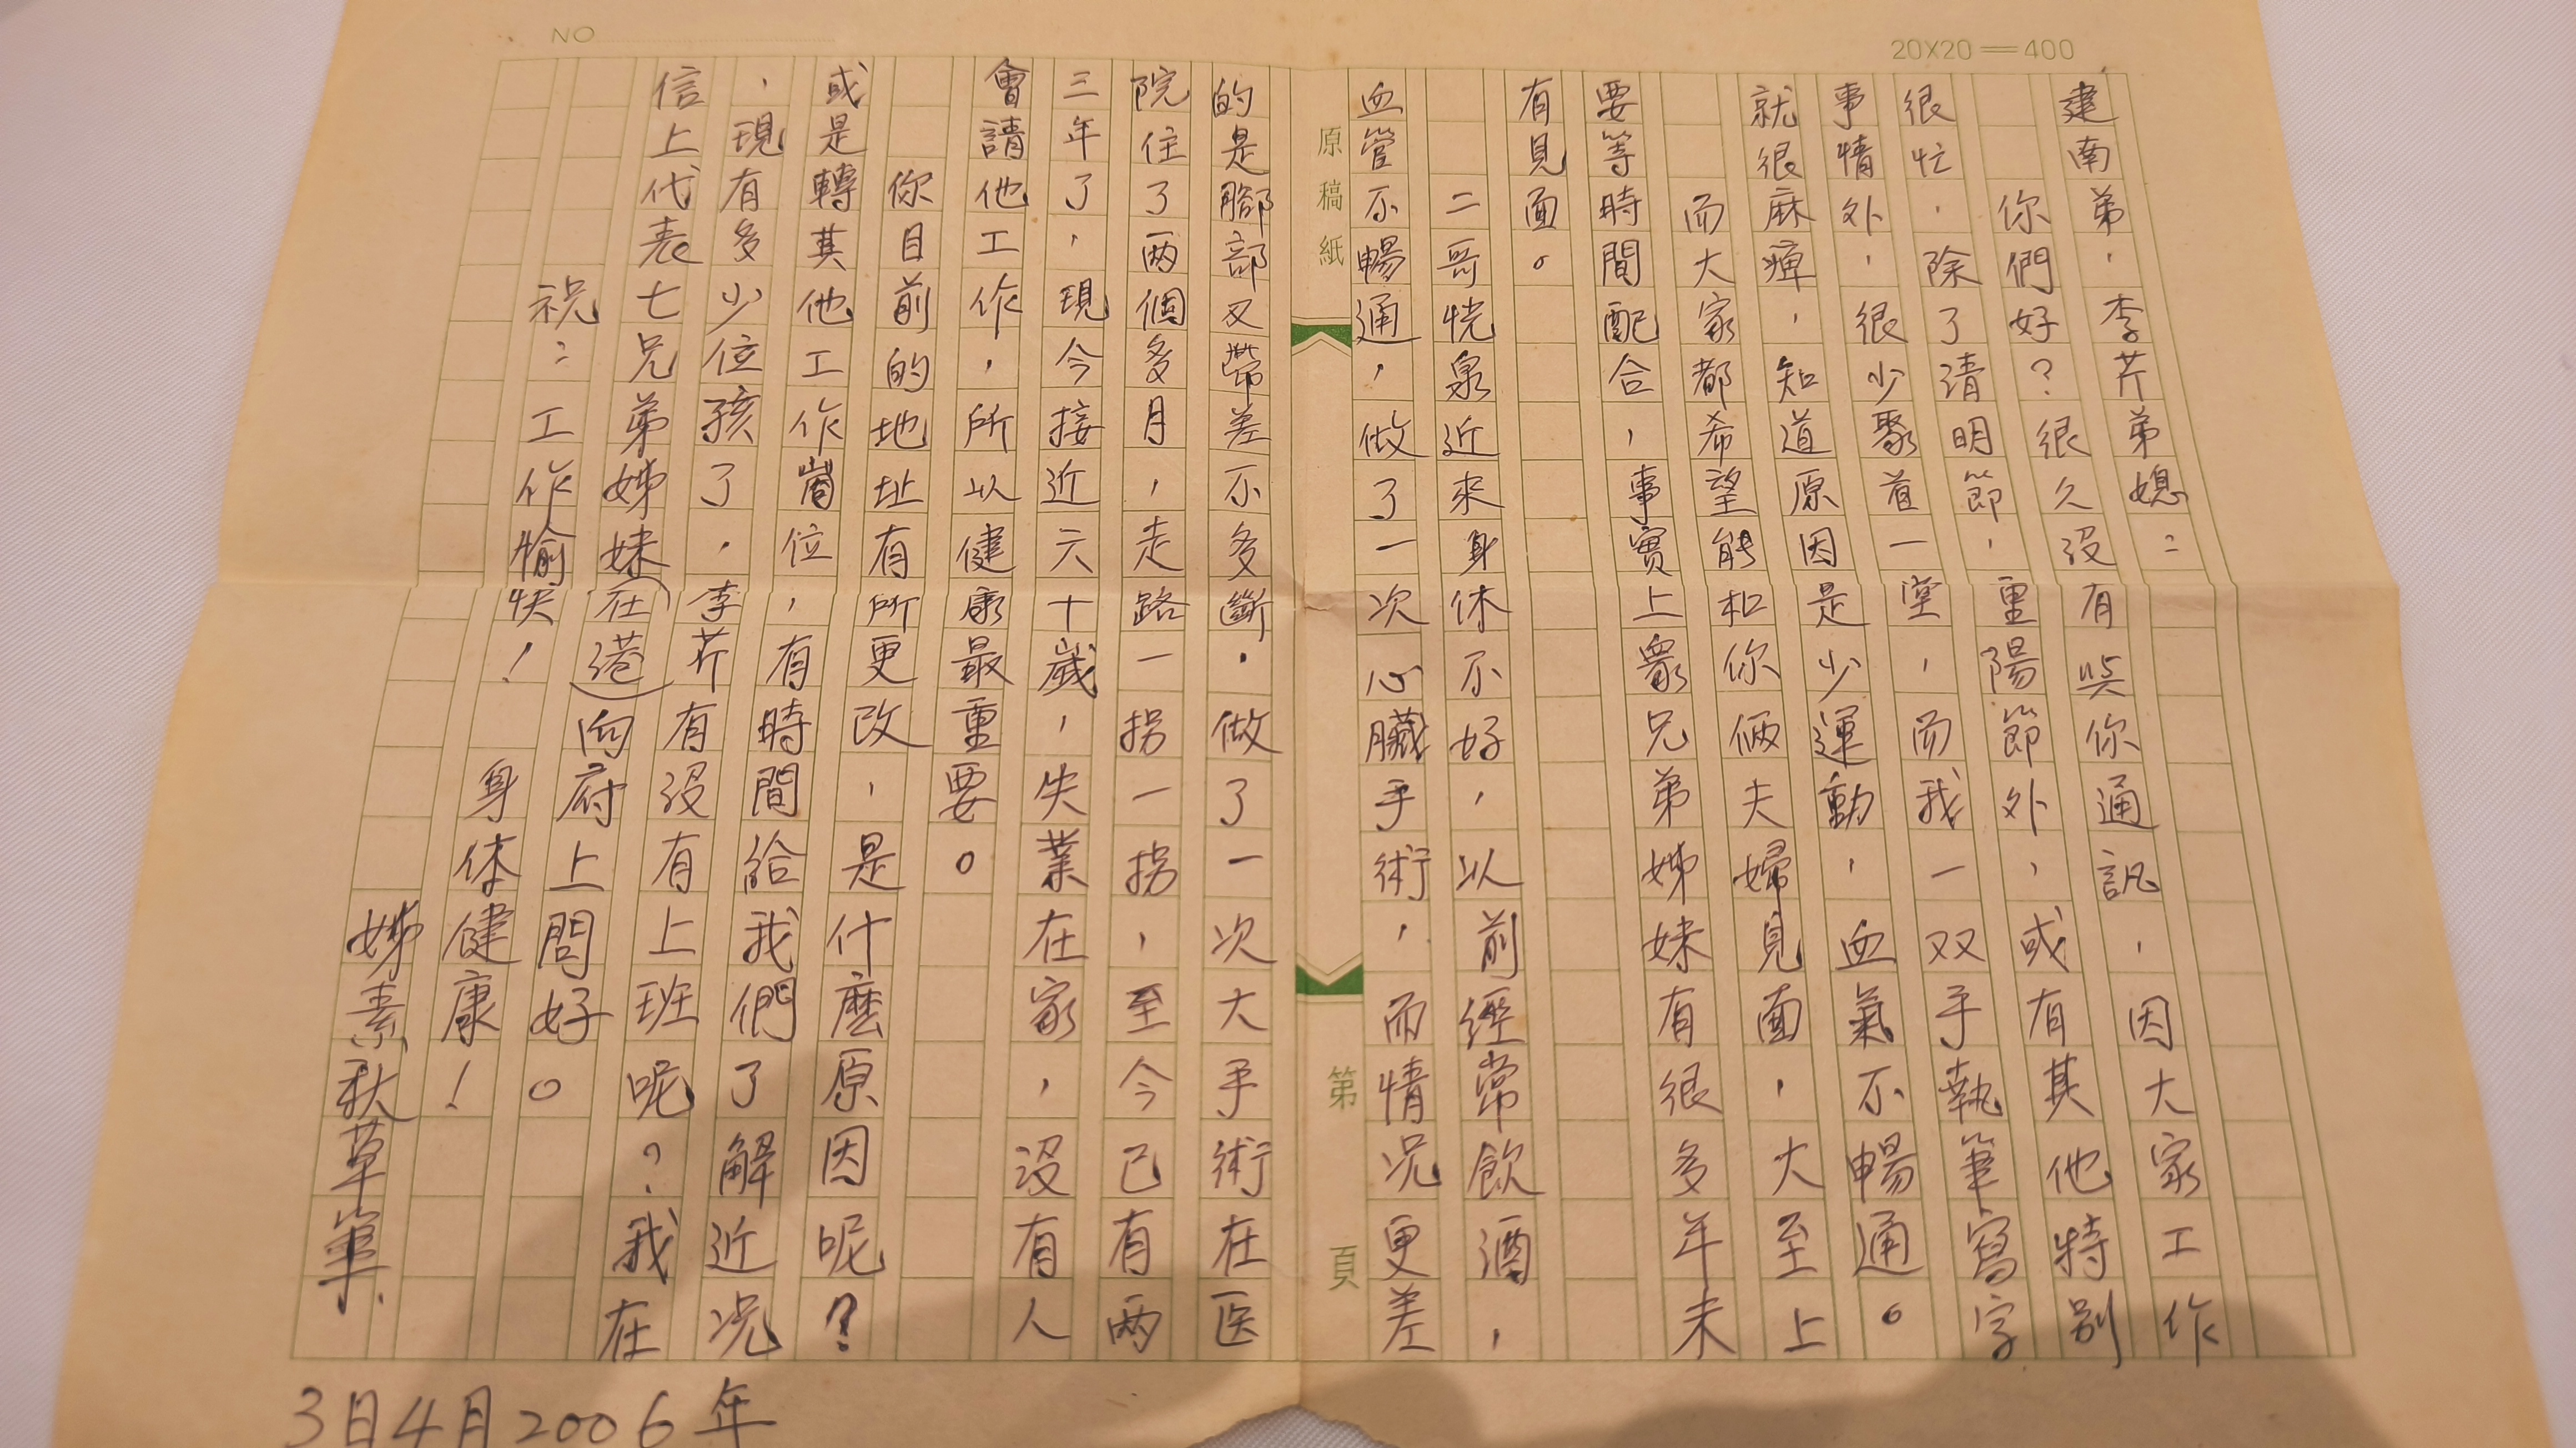 NO
20X20=400
建南弟，李芹弟媳：
你們好？很久没有與你通訊，因大家工作
很忙，除了清明節，重陽節外，或有其他特别
事情外，很少聚首一堂，而我一双手執筆寫字
就很麻痺，知道原因是少運動，血氣不暢通。
而大家都希望能和你倆夫婦見面，大至上
要等時間配合，事實上眾兄弟姊妹有很多年未
有見面。
二哥恍泉近來身体不好，以前經常飲酒，
血管不暢通，做了一次心臟手術，而情况更差
原稿紙
第 頁
的是腳部叉帶差不多斷，做了一次大手術在医
院住了兩個多月，走路一拐一拐，至今已有兩
三年了，現今接近六十歲，失業在家，没有人
會請他工作，所以健康最重要。
你目前的地址有所更改，是什麽原因呢？
或是轉其他工作崗位，有時間給我們了解近况
，現有多少位孩了，李芹有没有上班呢？我在
信上代表七兄弟姊妹(在港)向府上問好。
祝：工作愉快！身体健康！
姊素秋草筆
3日4月2006年